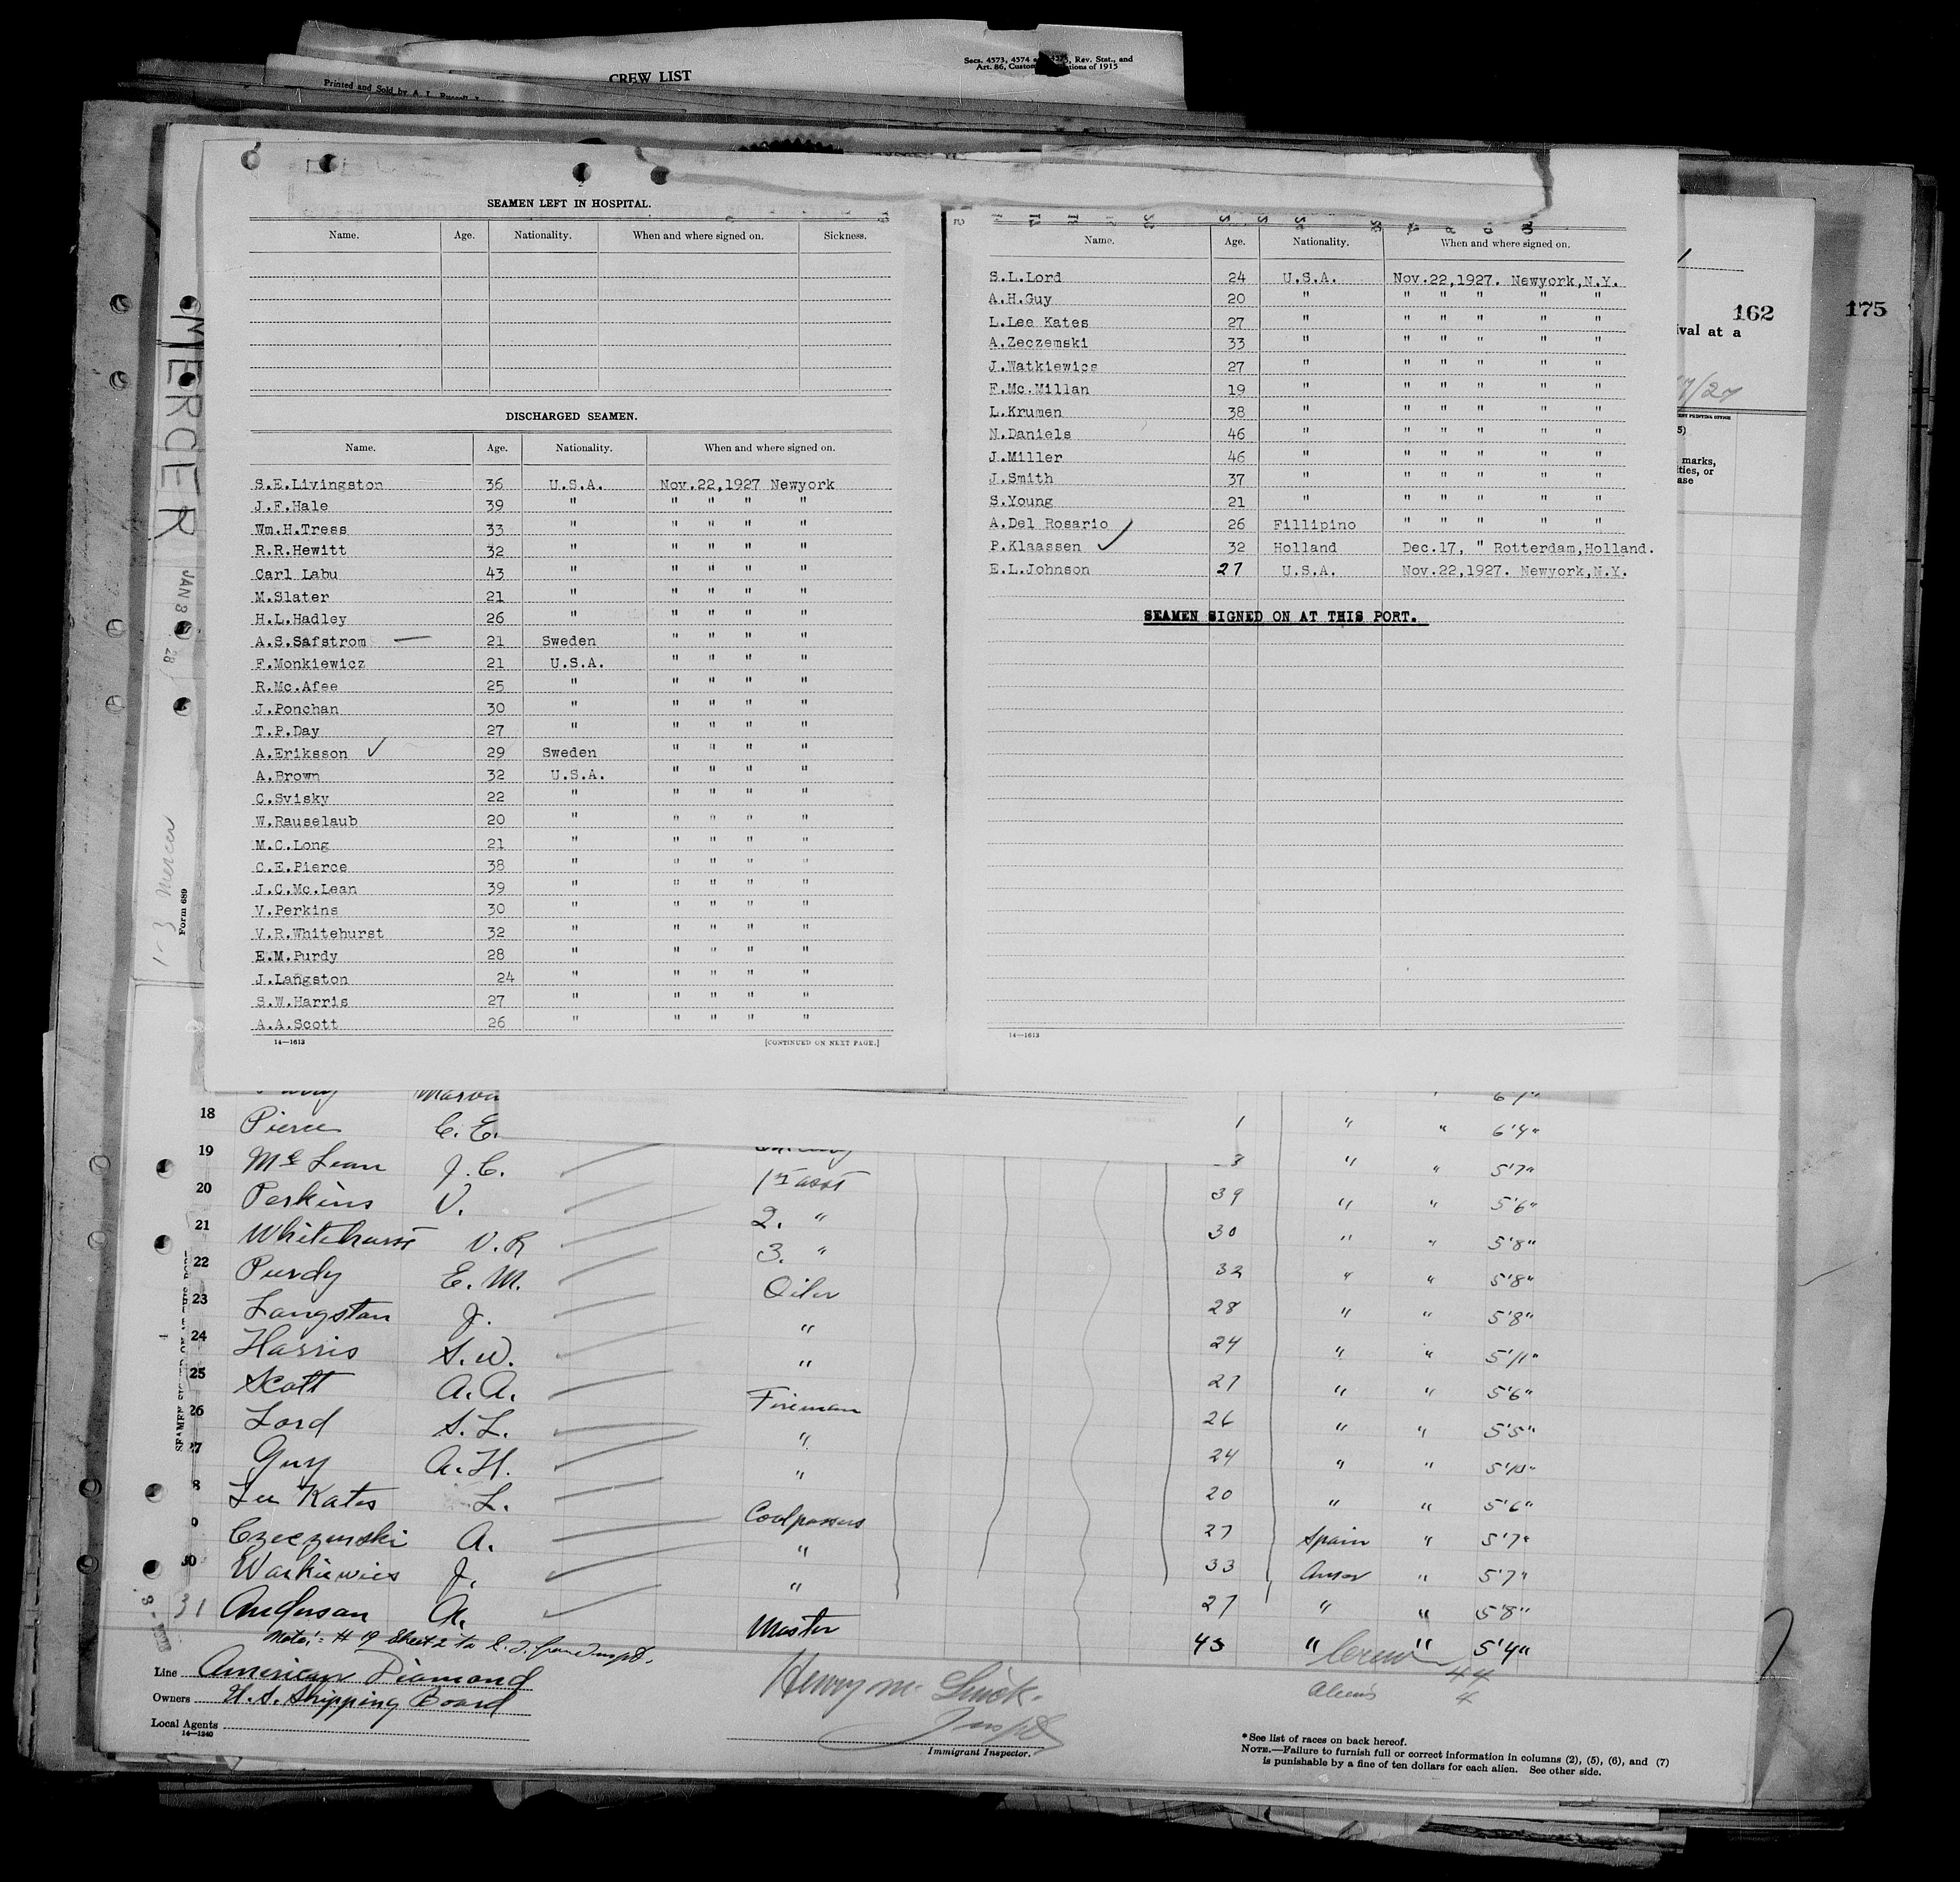 CREW LIST
Printed and Sold by A. L.
Secs. 4573, 4574 Rev. Stat., and
Art. 86, of 1915
162
175
ival at a
7/27
marks,
ties, or
ase
MERCER
JAN 3 28
1-3 Mercer
Form 689
SEAMEN LEFT IN HOSPITAL.
Name. Age. Nationality. When and where signed on. Sickness.
DISCHARGED SEAMEN.
Name. Age. Nationality. When and where signed on.
S.E.Livingston 36 U.S.A. Nov.22,1927 Newyork
J.F.Hale 39 " " " " "
Wm.H.Tress 33 " " " " "
R.R.Hewitt 32 " " " " "
Carl Labu 43 " " " " "
M.Slater 21 " " " " "
H.L.Hadley 26 " " " " "
A.S.Safstrom — 21 Sweden " " " "
F.Monkiewicz 21 U.S.A. " " " "
R.Mc.Afee 25 " " " " "
J.Ponchan 30 " " " " "
T.P.Day 27 " " " " "
A.Eriksson ✓ 29 Sweden " " " "
A.Brown 32 U.S.A. " " " "
C.Svisky 22 " " " " "
W.Rauselaub 20 " " " " "
M.C.Long 21 " " " " "
C.E.Pierce 38 " " " " "
J.C.Mc.Lean 39 " " " " "
V.Perkins 30 " " " " "
V.R.Whitehurst 32 " " " " "
E.M.Purdy 28 " " " " "
J.Langston 24 " " " " "
S.W.Harris 27 " " " " "
A.A.Scott 26 " " " " "
14—1613 [CONTINUED ON NEXT PAGE.]
Name. Age. Nationality. When and where signed on.
S.L.Lord 24 U.S.A. Nov.22,1927. Newyork,N.Y.
A.H.Guy 20 " " " " " "
L.Lee Kates 27 " " " " " "
A.Zeczemski 33 " " " " " "
J.Watkiewics 27 " " " " " "
F.Mc.Millan 19 " " " " " "
L.Krumen 38 " " " " " "
N.Daniels 46 " " " " " "
J.Miller 46 " " " " " "
J.Smith 37 " " " " " "
S.Young 21 " " " " " "
A.Del Rosario ✓ 26 Fillipino " " " " "
P.Klaassen ✓ 32 Holland Dec.17, " Rotterdam,Holland.
E.L.Johnson 27 U.S.A. Nov.22,1927. Newyork,N.Y.
SEAMEN SIGNED ON AT THIS PORT.
14—1613
18 Pierce C. E. 1 " " 6'4"
19 McLean J. C. 1st asst " " 5'7"
20 Perkins V. 2. " 39 " " 5'6"
21 Whitehurst V. R 3. " 30 " " 5'8"
22 Purdy E. M. Oiler 32 " " 5'8"
23 Langston J. " 28 " " 5'8"
24 Harris S. W. " 24 " " 5'11"
25 Scott A. A. Fireman 27 " " 5'6"
26 Lord S. L. " 26 " " 5'5"
27 Guy A. H. " 24 " " 5'10"
8 Lee Kates L. Coalpassers 20 " " 5'6"
Czeczemski A. " 27 Spain " 5'7"
30 Warkiewics J. " 33 Amer " 5'7"
31 Anderson A. Master 27 " " 5'8"
43 " " 5'4"
Note: # 19 Sheet 2
Line American Diamond
Owners U. S. Shipping Board
Local Agents
14—1240
Henry M.
Insp
Immigrant Inspector.
Crew 44
Aliens 4
*See list of races on back hereof.
NOTE.—Failure to furnish full or correct information in columns (2), (5), (6), and (7)
is punishable by a fine of ten dollars for each alien. See other side.